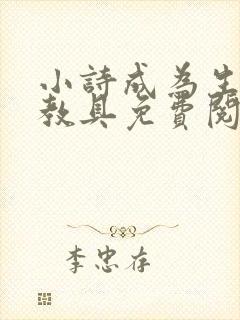 小詩成為生
教具免費閱
李忠存